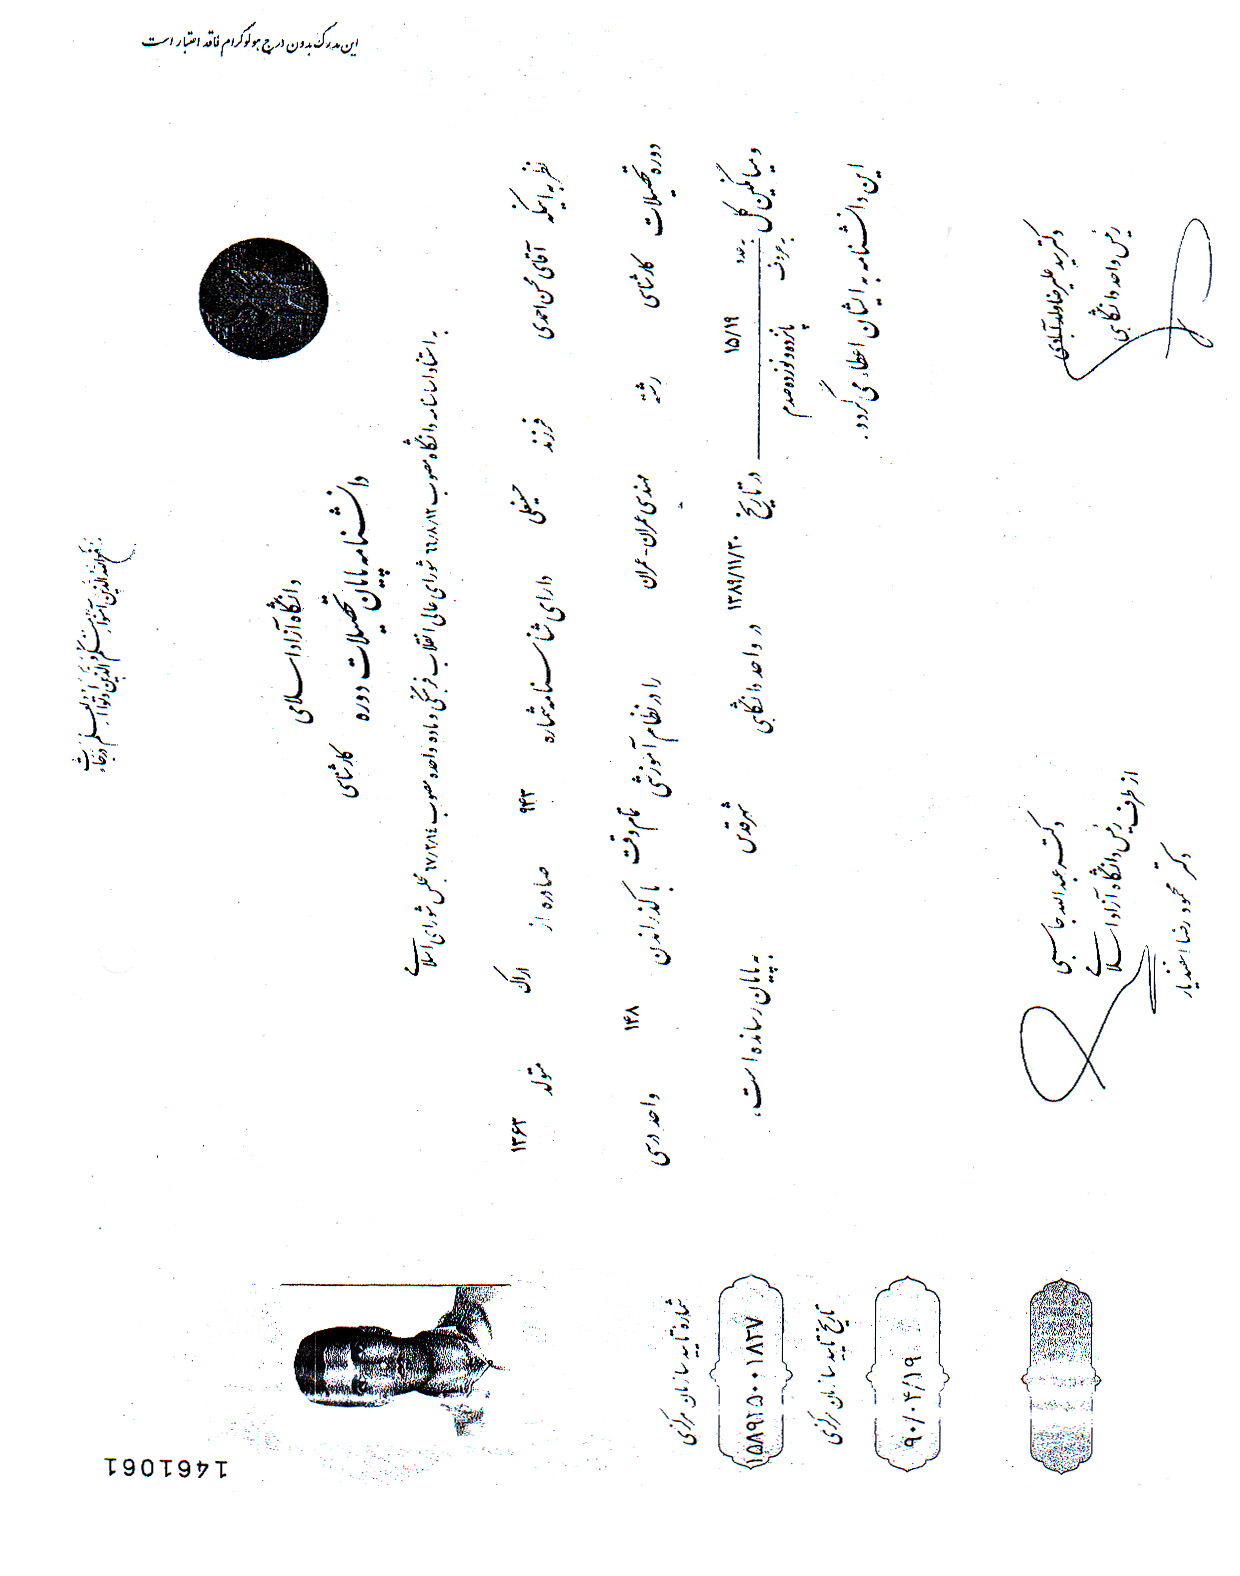 این مدرک بدون درج هولوگرام فاقد اعتبار است
یرفع الله الذین آمنوا منکم والذین اوتوا العلم درجات
دانشگاه آزاد اسلامی
دانشنامه پایان تحصیلات دوره کارشناسی
به استناد اساسنامه دانشگاه مصوب ۶۶/۸/۱۲ شورای عالی انقلاب فرهنگی و ماده واحده مصوب ۶۷/۲/۱۴ مجلس شورای اسلامی
نظر به اینکه آقای محسن احمدی فرزند حسینعلی دارای شناسنامه شماره ۹۴۳ صادره از اراک متولد ۱۳۶۳
دوره تحصیلات کارشناسی رشته مهندسی عمران - عمران را در نظام آموزشی تمام وقت با گذراندن ۱۴۸ واحد درسی
و میانگین کل به عدد ۱۵/۱۹ به حروف پانزده و نوزده صدم در تاریخ ۱۳۸۹/۱۱/۳۰ در واحد دانشگاهی شهرقدس به پایان رسانده است،
این دانشنامه به ایشان اعطاء می گردد.
دکتر سید علیرضا ولدآبادی
رئیس واحد دانشگاهی
دکتر عبدالله جاسبی
از طرف رئیس دانشگاه آزاد اسلامی
دکتر محمود رضا اسفندیار
شماره تایید سازمان مرکزی
۱۵۸۹۲۵۰۰۱۸۲۷
تاریخ تایید سازمان مرکزی
۹۰/۰۴/۱۹
1461061